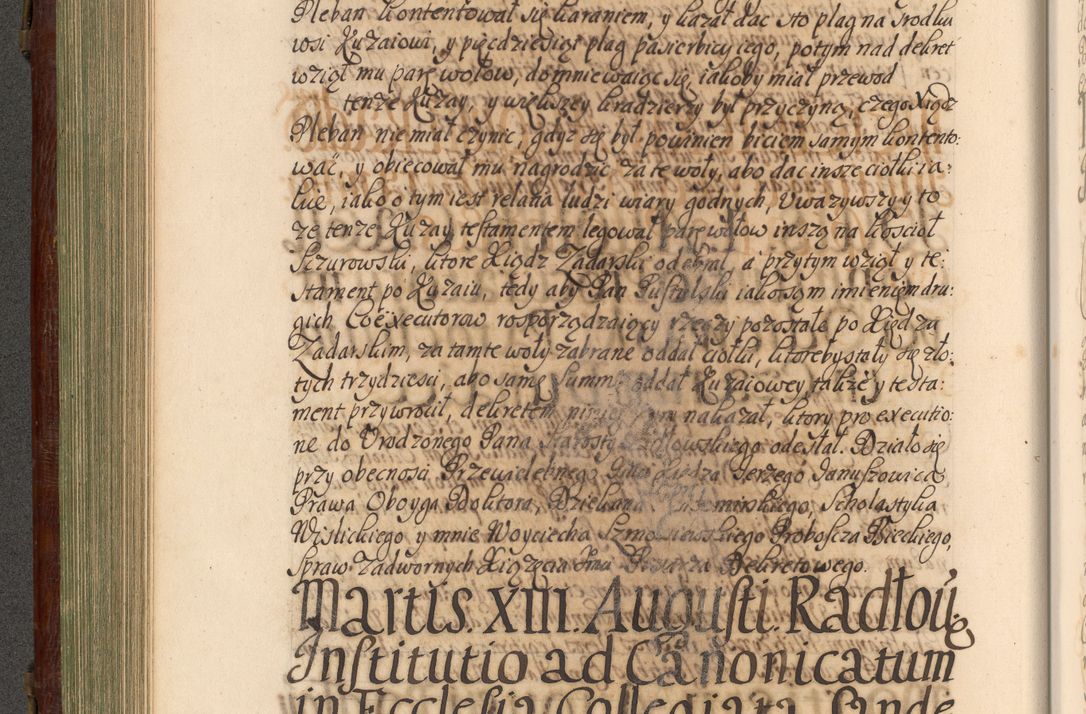 Pleban kontentował się karaniem, y kazał dac sto plag na srodku
wsi Kuzaiowi, y pięcdziesiąt plag pasierbicy iego, potym nad dekret
wziął mu parę wołow, domniewaiąc się, iakoby miał przewod
tenze Kuzay, y większey kradzierzy był przyczyną, czego Xiądz
Pleban nie miał czynic, gdyz się był powinien biciem samym kontento:
wać, y obiecował mu nagrodzic za te woły, abo dac insze ciołki ia:
kie, iako o tym iest relatia ludzi wiary godnych, Uwazywszy y to
ze tenze Kuzay testamentem legował parę wołow inszą na kościoł
Szczurowski, ktore Xiądz Zadarski odebrał, a przy tym wziął y te:
stament po Kuzaiu, tedy aby Pan Pustolski iako sam imieniem dru:
gich Coexecutorow rosporządzaiący rzeczy pozostałe po Xiędzu
Zadarskim, za tamte woły zabrane oddał ciołki, ktoreby stały się zło:
tych trzydziesci, abo samę summę oddał Kuzaiowey, takze y testa:
ment przywrocił, dekretem nakazał, ktory pro executio:
ne do Urodzonego Pana Starosty odesłał. Działo się
przy obecnosci Przewielebnego Xiędza Jerzego Januszowica
Prawa Oboyga Doktora, Dziekana Scholastyka
Wislickiego y mnie Woyciecha Proboscza Bieckiego,
Spraw Zadwornych Xiązęcia Jmci Pisarza Dekretowego.
Martis. XIII. Augusti. Radłoú
Institutio ad Canonicatum
in Ecclesia Collegiata Sande